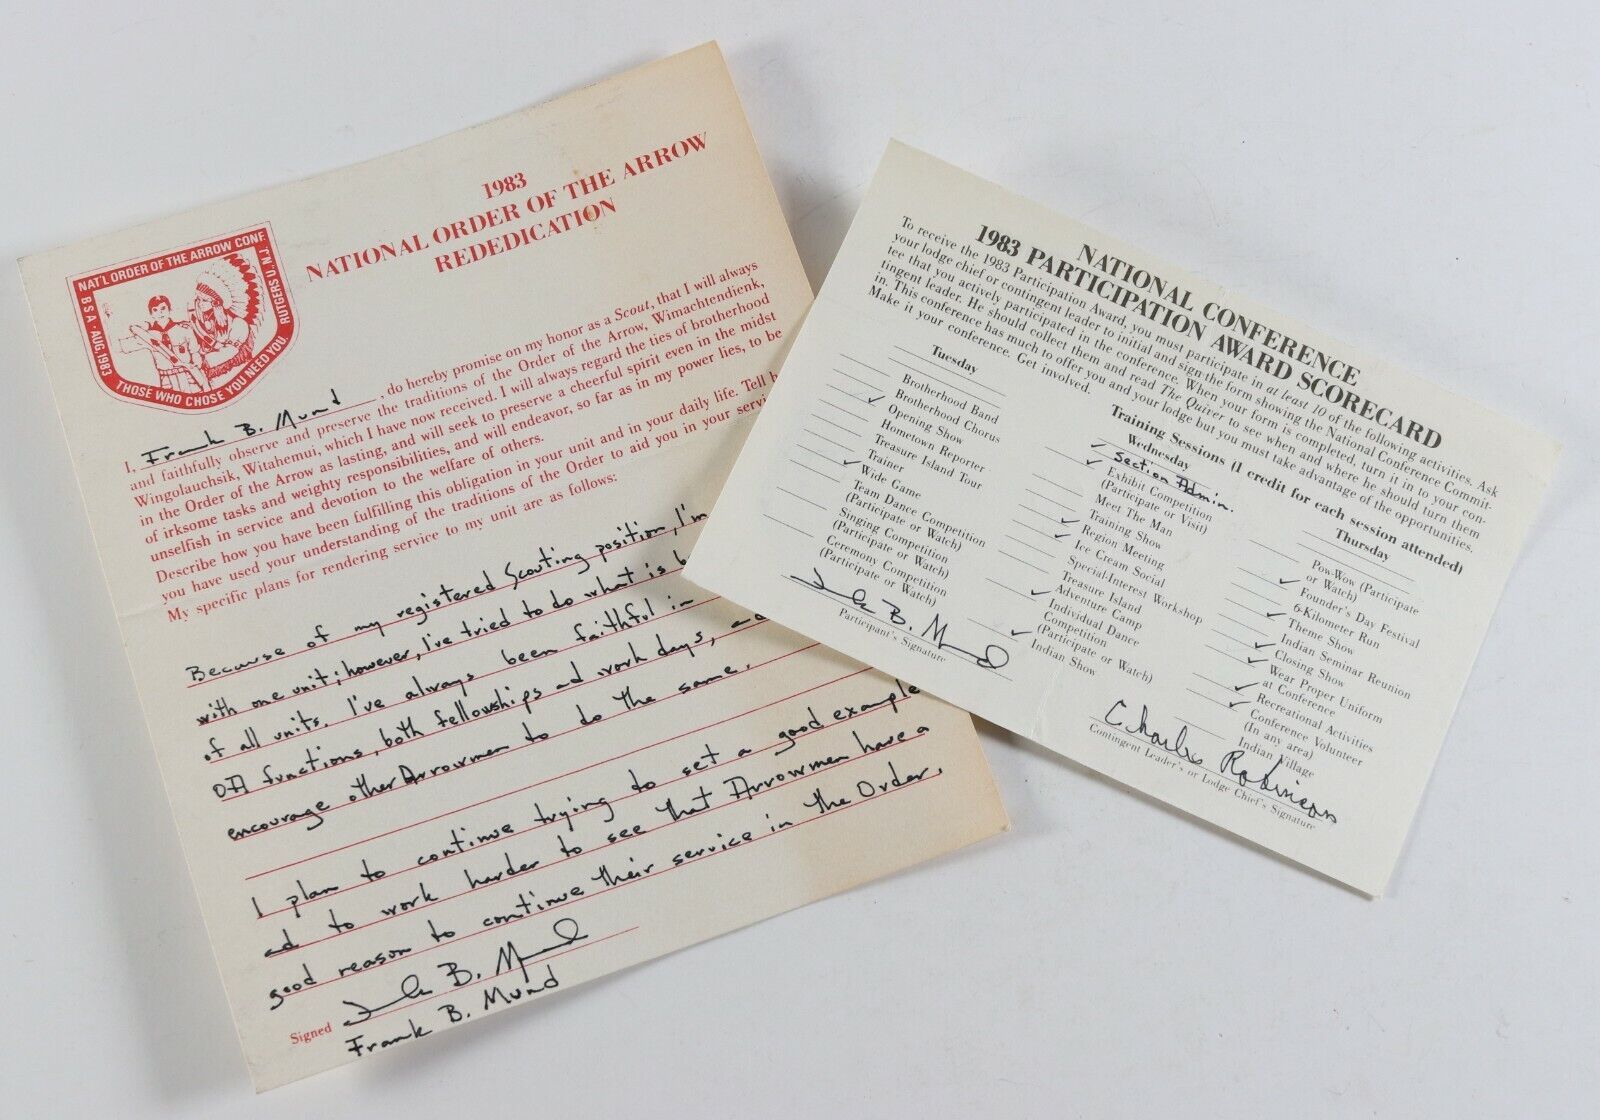 1983
NATIONAL ORDER OF THE ARROW
REDEDICATION
NAT'L ORDER OF THE ARROW CONF.
RUTGERS U., N.J.
BSA · AUG. 1983
THOSE WHO CHOSE YOU NEED YOU.
I, Frank B. Mund, do hereby promise on my honor as a Scout, that I will always
and faithfully observe and preserve the traditions of the Order of the Arrow, Wimachtendienk,
Wingolauchsik, Witahemui, which I have now received. I will always regard the ties of brotherhood
in the Order of the Arrow as lasting, and will seek to preserve a cheerful spirit even in the midst
of irksome tasks and weighty responsibilities, and will endeavor, so far as in my power lies, to be
unselfish in service and devotion to the welfare of others.
Describe how you have been fulfilling this obligation in your unit and in your daily life. Tell
you have used your understanding of the traditions of the Order to aid you in your
My specific plans for rendering service to my unit are as follows:
Because of my registered Scouting position, I'm
with one unit; however, I've tried to do what is
of all units. I've always been faithful in
OA functions, both fellowships ad work days,
encourage other Arrowmen to do the same.
I plan to continue trying to set a good example
ad to work harder to see that Arrowmen have a
good reason to continue their service in the Order.
Signed Frank B. Mund
Frank B. Mund
NATIONAL CONFERENCE
1983 PARTICIPATION AWARD SCORECARD
To receive the 1983 Participation Award, you must participate in at least 10 of the following activities. Ask
your lodge chief or contingent leader to initial and sign the form showing the National Conference Commit-
tee that you actively participated in the conference. When your form is completed, turn it in to your con-
tingent leader. He should collect them and read The Quiver to see when and where he should turn them
in. This conference has much to offer you and your lodge but you must take advantage of the opportunities.
Make it your conference. Get involved.
Training Sessions (1 credit for each session attended)
Tuesday
Brotherhood Band
Brotherhood Chorus
✓ Opening Show
Hometown Reporter
Treasure Island Tour
Trainer
✓ Wide Game
Team Dance Competition
(Participate or Watch)
Singing Competition
(Participate or Watch)
Ceremony Competition
(Participate or Watch)
Frank B. Mund
Participant's Signature
Wednesday
✓ Section Admin.
✓ Exhibit Competition
(Participate or Visit)
Meet The Man
Training Show
✓ Region Meeting
✓ Ice Cream Social
Special-Interest Workshop
Treasure Island
✓ Adventure Camp
Individual Dance
Competition
(Participate or Watch)
✓ Indian Show
Thursday
Pow-Wow (Participate
or Watch)
✓ Founder's Day Festival
6-Kilometer Run
✓ Theme Show
Indian Seminar Reunion
✓ Closing Show
✓ Wear Proper Uniform
at Conference
✓ Recreational Activities
Conference Volunteer
(In any area)
✓ Indian Village
Charles Robinson
Contingent Leader's or Lodge Chief's Signature